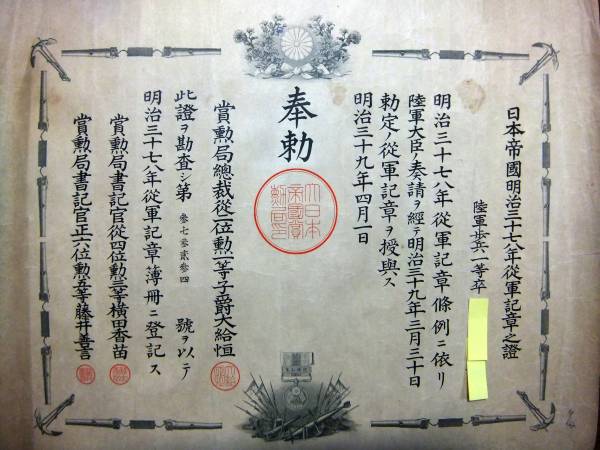 日本帝國明治三十七八年從軍記章之證
陸軍歩兵一等卒
明治三十七八年從軍記章條例ニ依リ
陸軍大臣ノ奏請ヲ經テ明治三十九年三月三十日
勅定ノ從軍記章ヲ授與ス
明治三十九年四月一日
奉勅
大日本帝國賞勳局印
賞勲局總裁從二位勲一等子爵大給恒
此證ヲ勘査シ第参七参貳参四號ヲ以テ
明治三十七八年從軍記章簿冊ニ登記ス
賞勲局書記官從四位勲三等横田香苗
賞勲局書記官正六位勲五等藤井善言